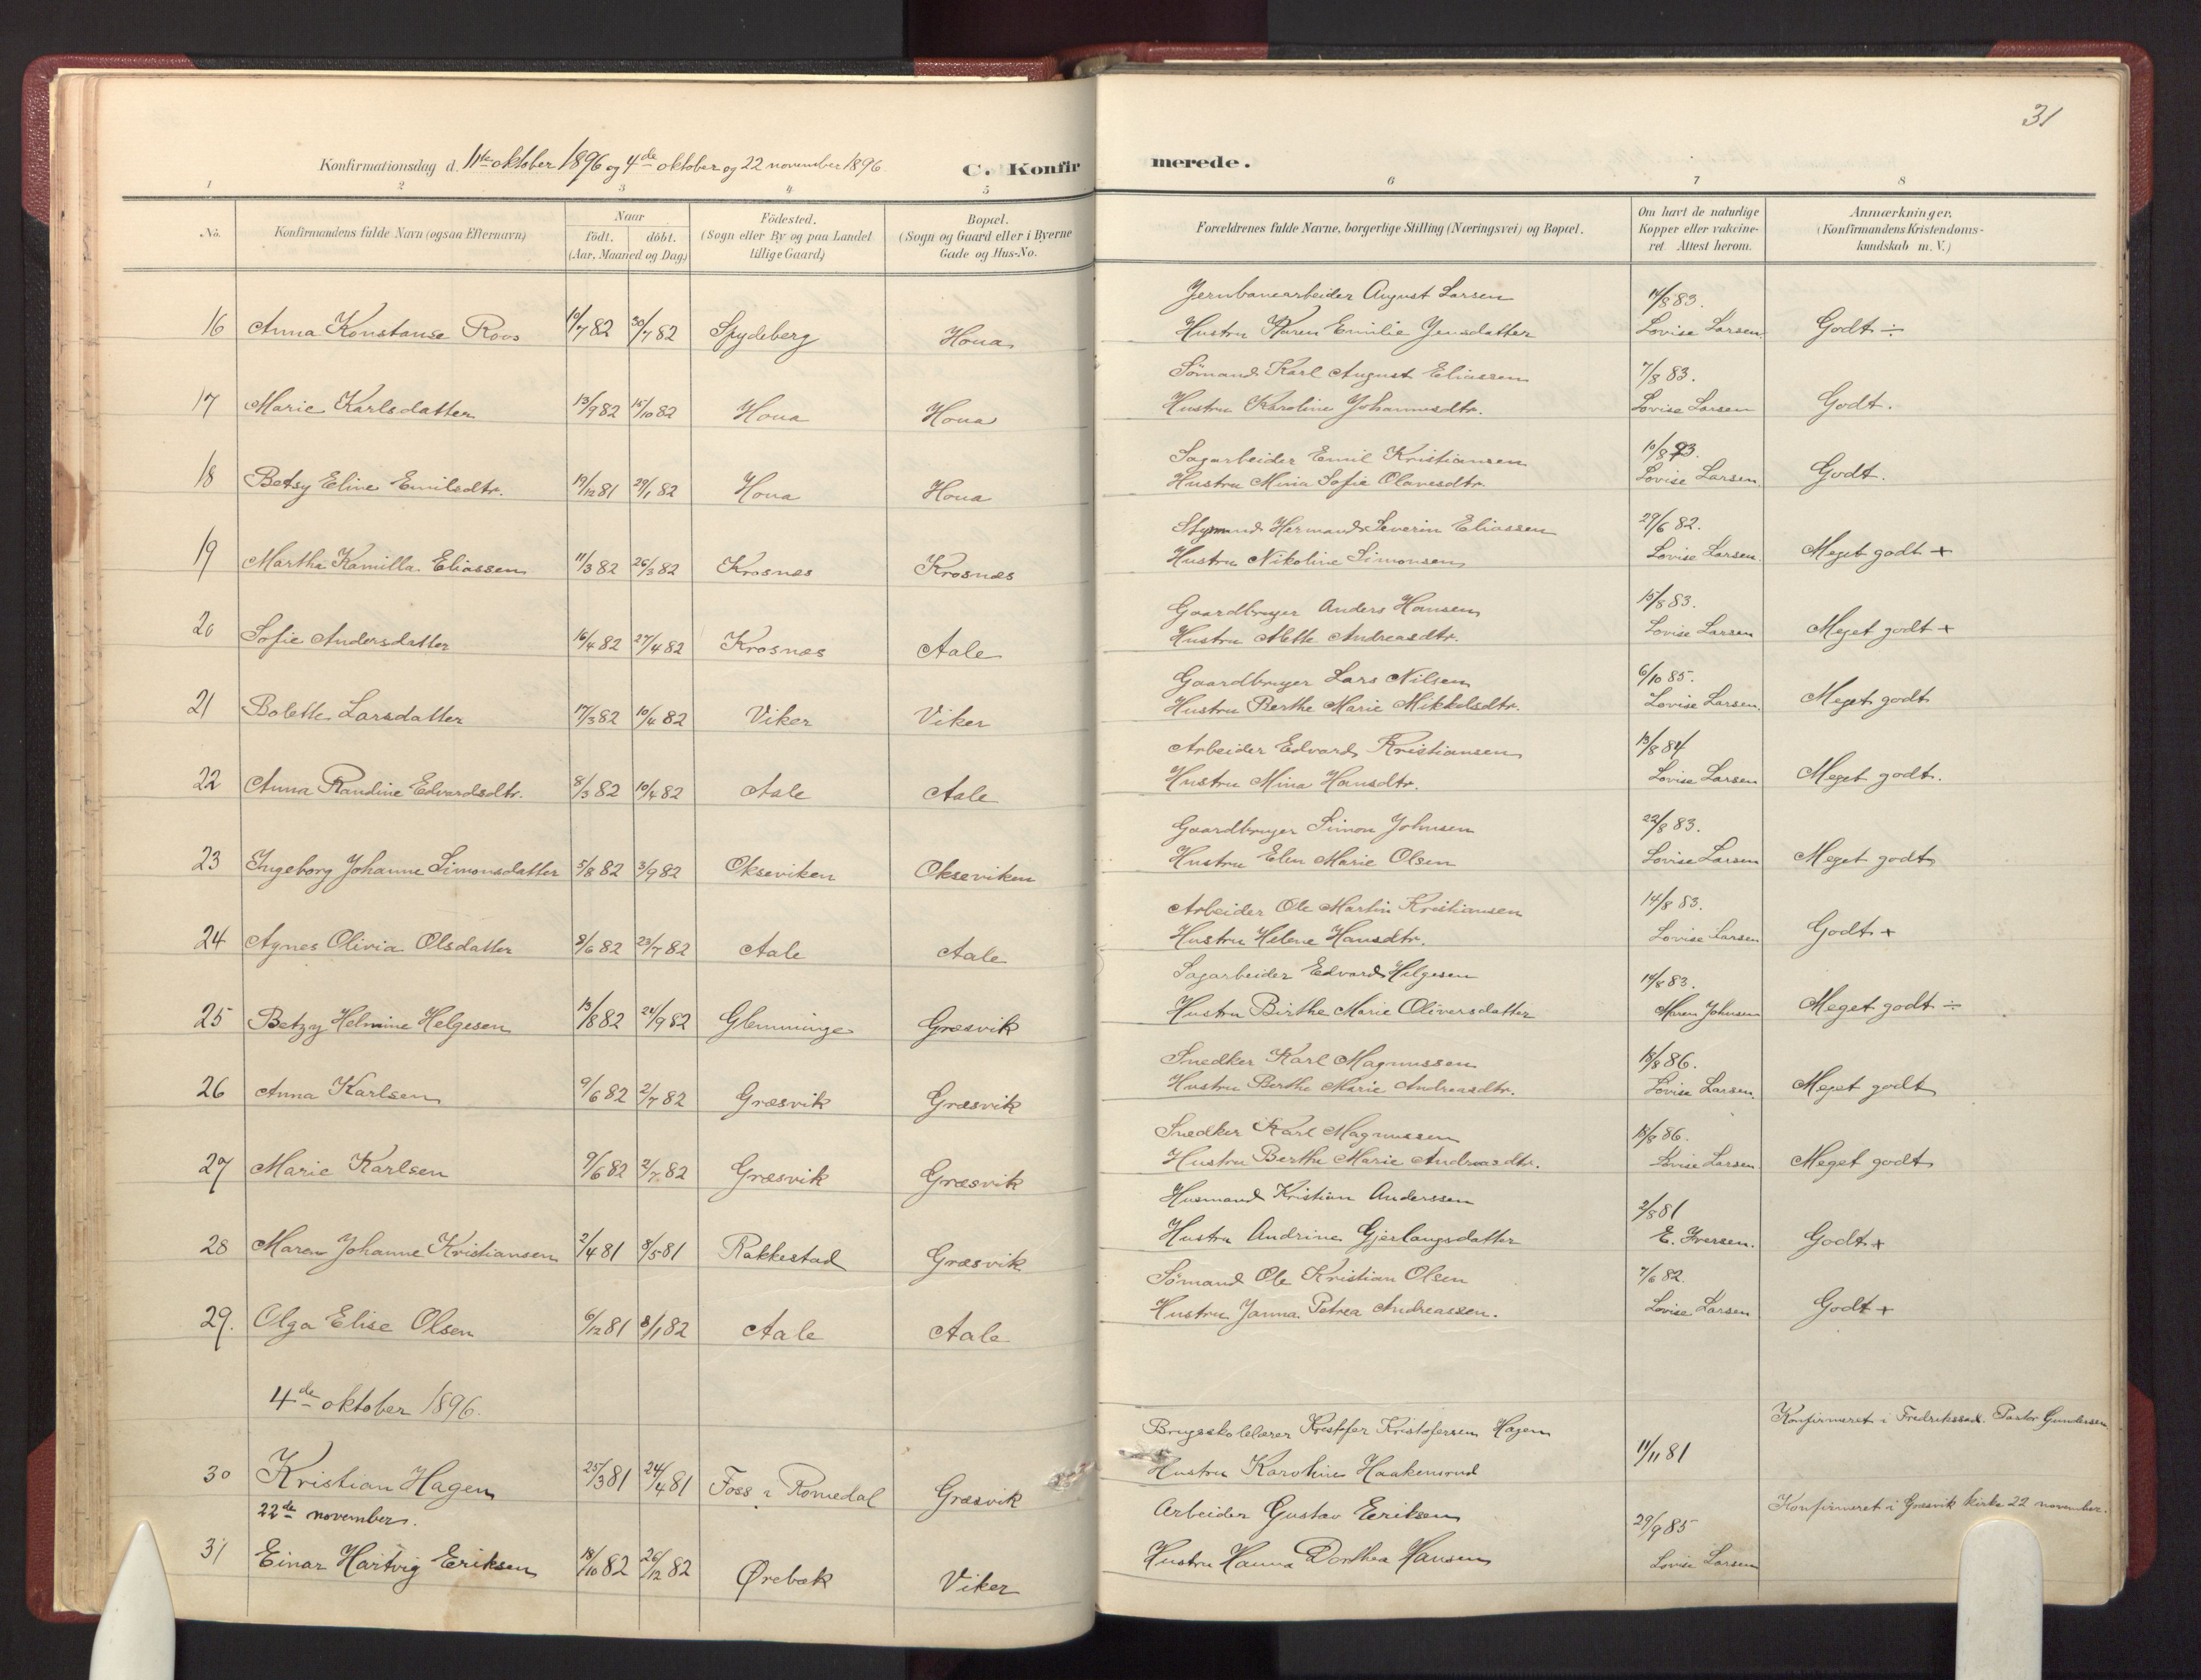 31
Konfirmationsdag d. 11te oktober 1896 og 4de oktober og 22 november 1896. C. Konfirmerede.
1 2 3 4 5 6 7 8
No. Konfirmandens fulde Navn (ogsaa Efternavn) Naar födt. döbt. (Aar, Maaned og Dag) Födested. (Sogn eller By og paa Landet tillige Gaard) Bopæl. (Sogn og Gaard eller i Byerne Gade og Hus-No. Forældrenes fulde Navne, borgerlige Stilling (Næringsvei) og Bopæl. Om havt de naturlige Kopper eller vakcineret. Attest herom. Anmærkninger. (Konfirmandens Kristendomskundskab m. V.)
Jernbanearbeider August Larsen 14/8 83.
16 Anna Konstanse Roos 10/7 82 30/7 82 Spydeberg Houa Hustru Karen Emilie Jensdatter Lovise Larsen. Godt ÷
Sömand Karl August Eliassen 7/8 83.
17 Marie Karlsdatter 13/9 82 15/10 82 Houa Houa Hustru Karoline Johannesdtr. Lovise Larsen Godt.
Sagarbeider Emil Kristiansen 10/8 83.
18 Betsy Eline Emilsdtr. 19/12 81 29/1 82 Houa Houa Hustru Mina Sofie Olavesdtr. Lovise Larsen. Godt.
Styrmand Herman Severin Eliassen 29/6 82.
19 Martha Kamilla Eliassen 11/3 82 26/3 82 Krosnæs Krosnæs Hustru Nikoline Simonsen Lovise Larsen. Meget godt +
Gaardbruger Anders Hansen 15/8 83.
20 Sofie Andersdatter 16/4 82 27/4 82 Krosnæs Aale Hustru Mette Andreasdtr. Lovise Larsen Meget godt +
Gaardbruger Lars Nilsen 6/10 85.
21 Bolette Larsdatter 17/3 82 10/4 82 Viker Viker Hustru Berthe Marie Mikkelsdtr. Lovise Larsen. Meget godt
Arbeider Edvard Kristiansen 13/8 84
22 Anna Randine Edvardsdtr. 8/3 82 10/4 82 Aale Aale Hustru Mina Hansdtr. Lovise Larsen Meget godt.
Gaardbruger Simon Johnsen 22/8 83.
23 Ingeborg Johanne Simonsdatter 5/8 82 3/9 82 Okseviken Okseviken Hustru Elen Marie Olsen Lovise Larsen Meget godt
Arbeider Ole Martin Kristiansen 14/8 83.
24 Agnes Olivia Olsdatter 8/6 82 23/7 82 Aale Aale Hustru Helene Hansdtr. Lovise Larsen Godt +
Sagarbeider Edvard Helgesen 14/8 83.
25 Betzy Helmine Helgesen 13/8 82 24/9 82 Glemminge Græsvik Hustru Birthe Marie Oliversdatter Maren Johnsen Meget godt ÷
Snedker Karl Magnussen 18/8 86.
26 Anna Karlsen 9/6 82 2/7 82 Græsvik Græsvik Hustru Berthe Marie Andreasdtr. Lovise Larsen. Meget godt
Snedker Karl Magnussen 18/8 86.
27 Marie Karlsen 9/6 82 2/7 82 Græsvik Græsvik Hustru Berthe Marie Andreasdtr. Lovise Larsen Meget godt
Husmand Kristian Anderssen 2/8 81
28 Maren Johanne Kristiansen 2/4 81 8/5 81 Rakkestad Græsvik Hustru Andrine Gjerlaugsdatter E. Iversen. Godt +
Sömand Ole Kristian Olsen 7/6 82.
29. Olga Elise Olsen 6/12 81 8/1 82 Aale Aale Hustru Janna Petrea Andreassen. Lovise Larsen Godt +
4de oktober 1896.
Brugsskolelærer Kristofer Kristofersen Hagen 11/11 81 Konfirmeret i Fredrikstad. Pastor Gundersen
30 Kristian Hagen 25/3 81 24/4 81 Foss i Romedal Græsvik Hustru Karoline Haakensrud
22de november.
Arbeider Gustav Eriksen 29/9 85 Konfirmeret i Græsvik kirke 22 november.
31 Einar Hartvig Eriksen 18/10 82 26/12 82 Ørebæk Viker Hustru Hanna Dorthea Hansen Lovise Larsen